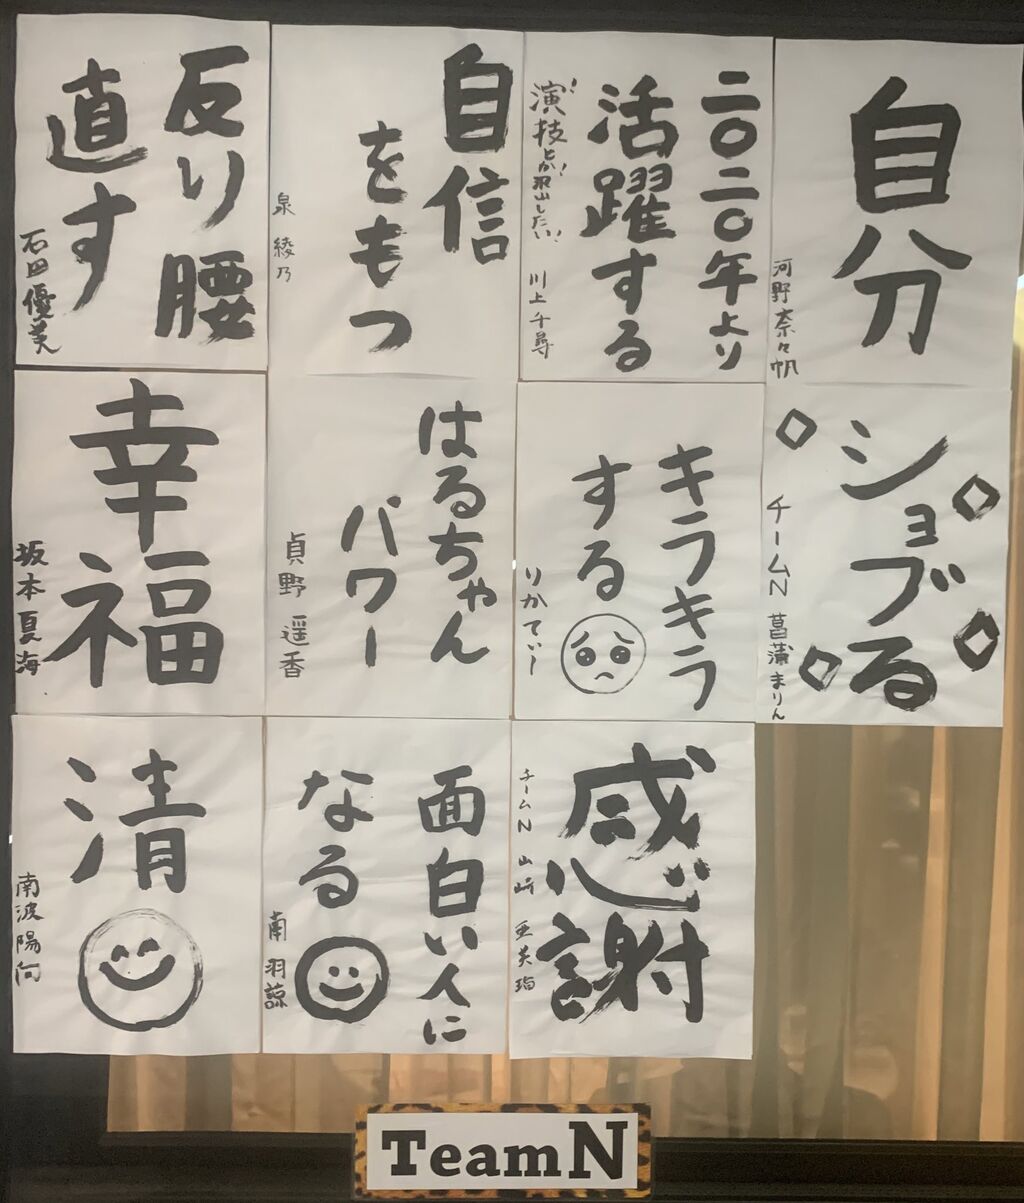 自分
河野奈々帆
二〇二〇年より
活躍する
川上千尋
自信
をもつ
泉綾乃
反り腰
直す
石田優美
ショブる
チームN 菖蒲まりん
キラキラ
する
りかてぃー
はるちゃん
パワー
貞野遥香
幸福
坂本夏海
感謝
チームN 山崎亜美瑠
面白い人に
なる
南羽諒
清
南波陽向
TeamN